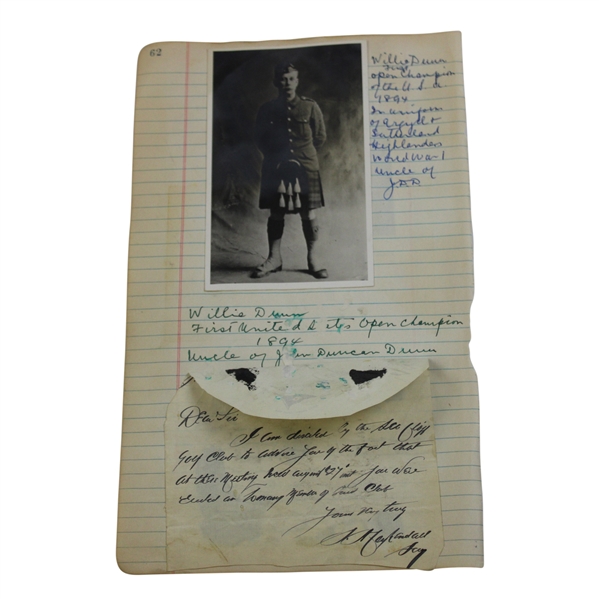 62
Willie Dunn
First
open Champion
of the U.S.A
1894
In uniform
of Argyll &
Sutherland
Highlanders
World War 1
Uncle of
JDD
Willie Dunn
First United States Open Champion
1894
Uncle of John Duncan Dunn
Dear Sir
I am directed by the
Golf Club to advise you of the fact that
at their Meeting held august 27th you were
Elected an Honorary Member of this Club
Yours very truly
Secy